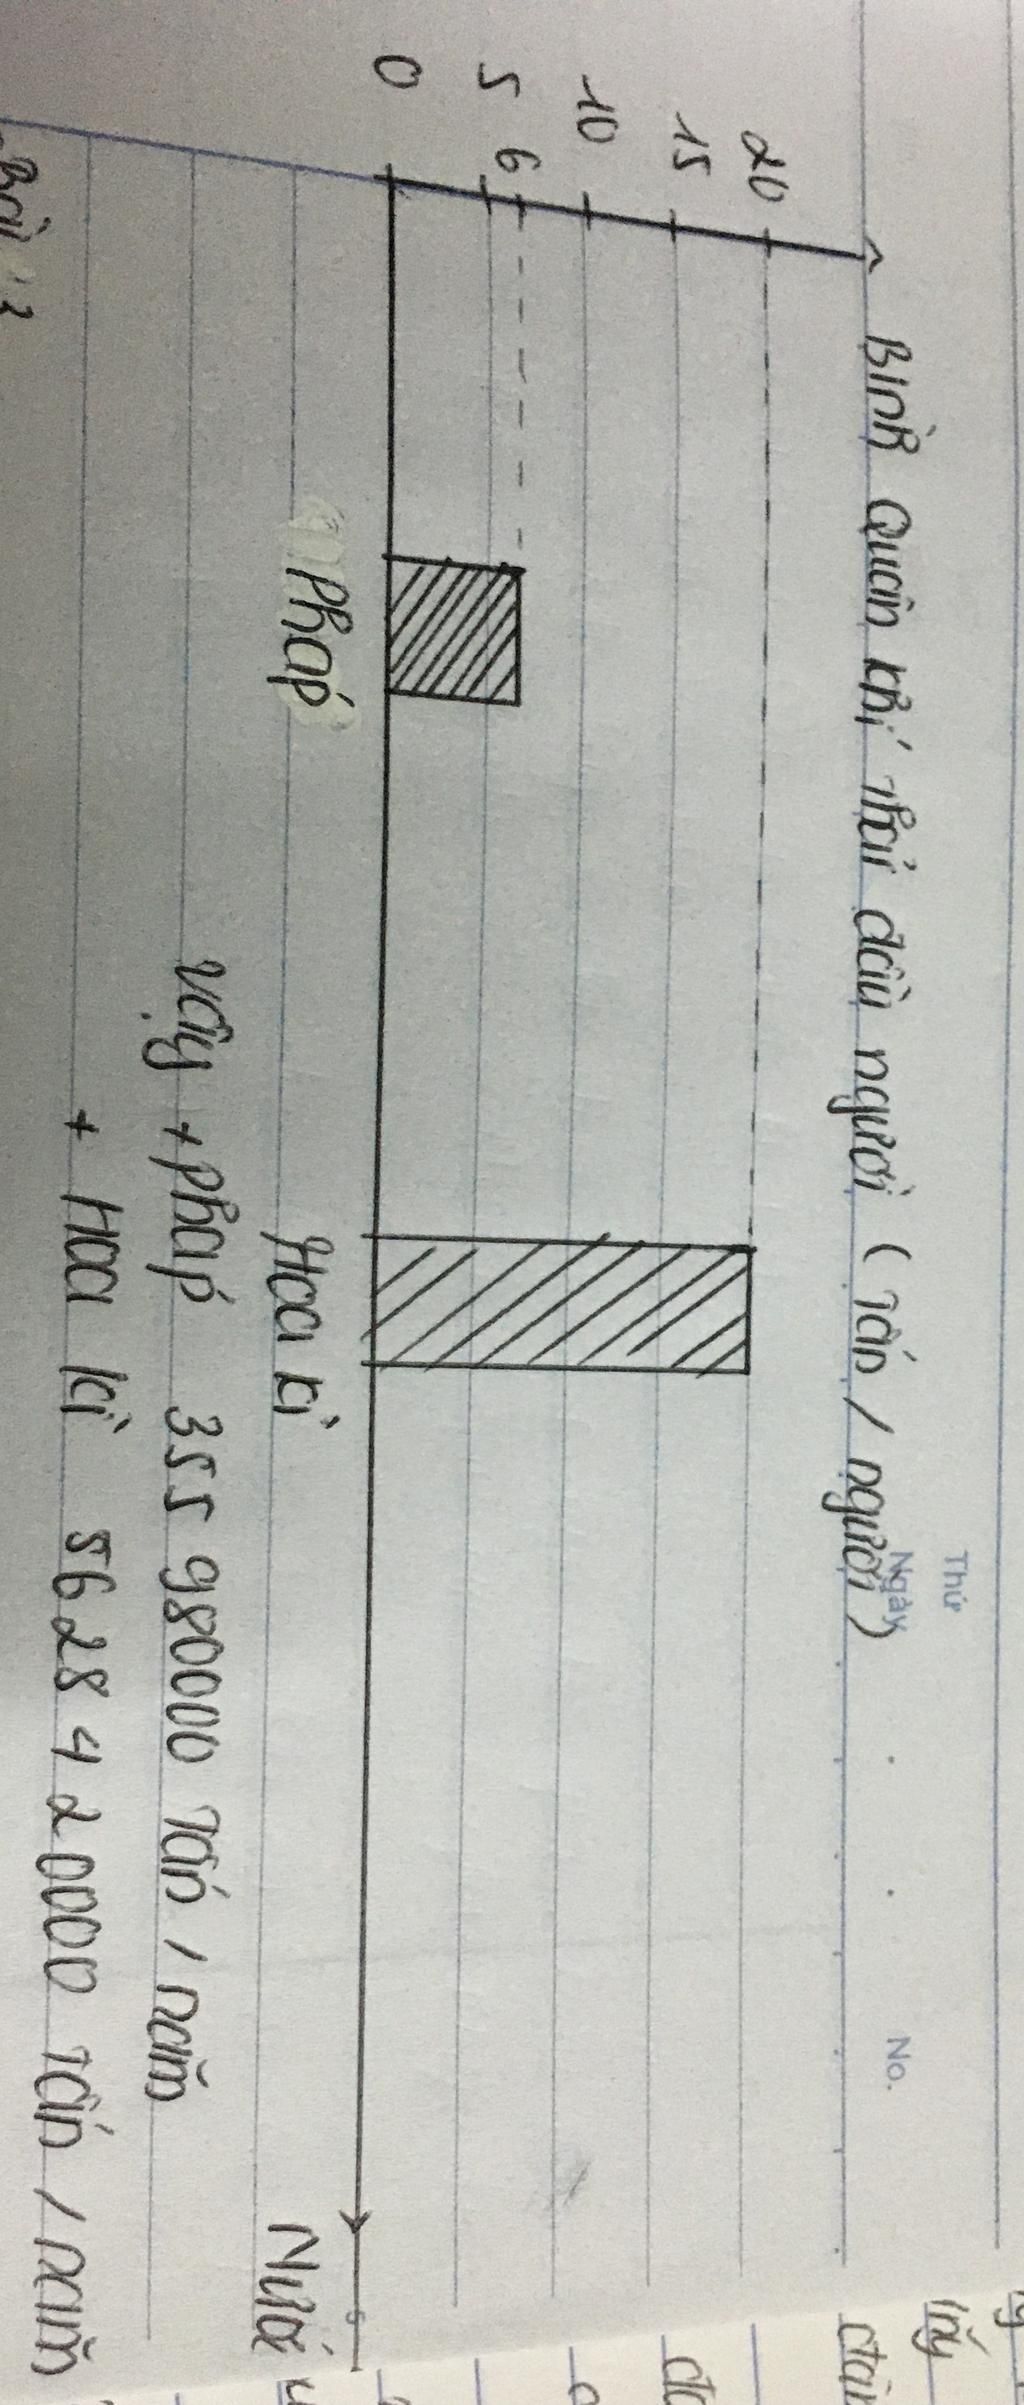 Thứ
Ngày
No.
Bình quân khí thải đầu người ( Tấn / người )
20
15
10
6
5
0
Pháp
Hoa kì
Nước
Vậy + Pháp 355 980000 Tấn / năm
+ Hoa kì 5628 420000 Tấn / năm
Bài